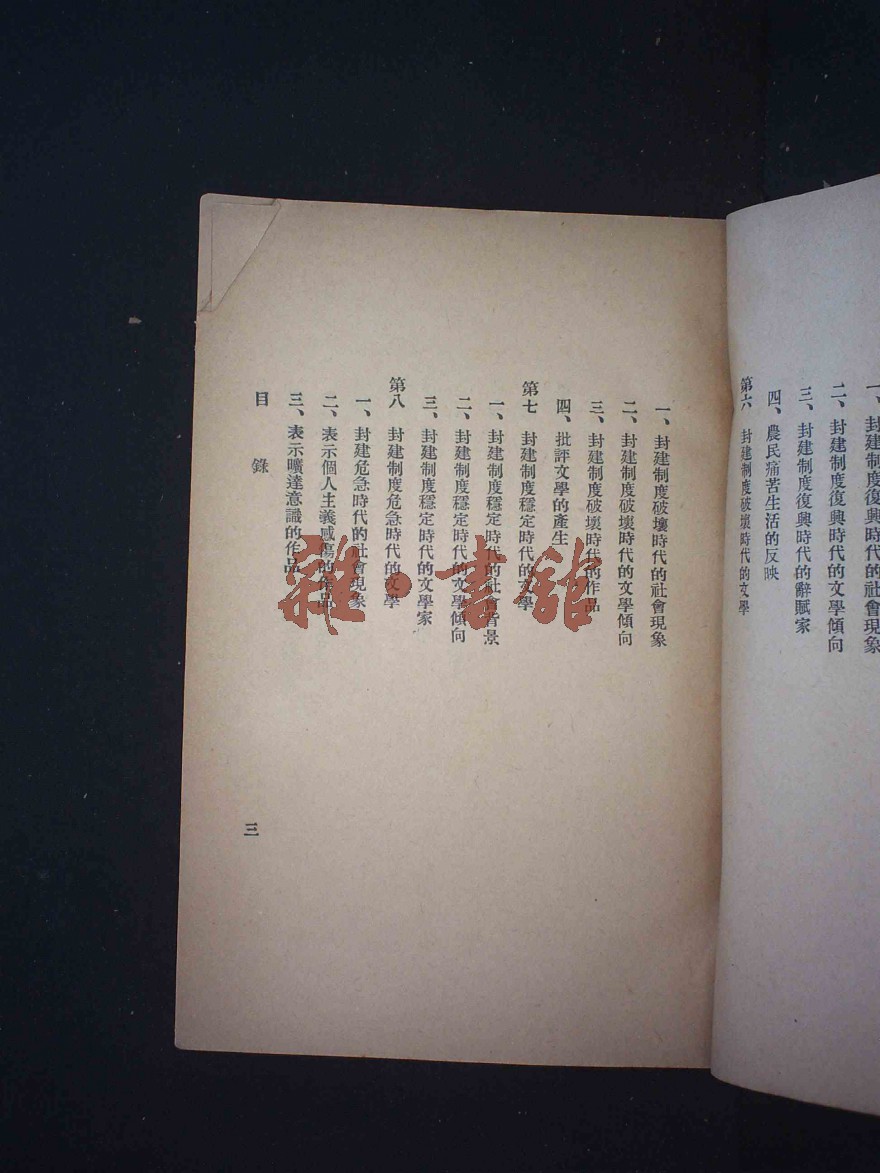 一、封建制度復興時代的社會現象
二、封建制度復興時代的文學傾向
三、封建制度復興時代的辭賦家
四、農民痛苦生活的反映
第六 封建制度破壞時代的文學
一、封建制度破壞時代的社會現象
二、封建制度破壞時代的文學傾向
三、封建制度破壞時代的作品
四、批評文學的產生
第七 封建制度穩定時代的文學
一、封建制度穩定時代的社會背景
二、封建制度穩定時代的文學傾向
三、封建制度穩定時代的文學家
第八 封建制度危急時代的文學
一、封建危急時代的社會現象
二、表示個人主義感傷的作品
三、表示曠達意識的作品
目錄
三
雜·書館